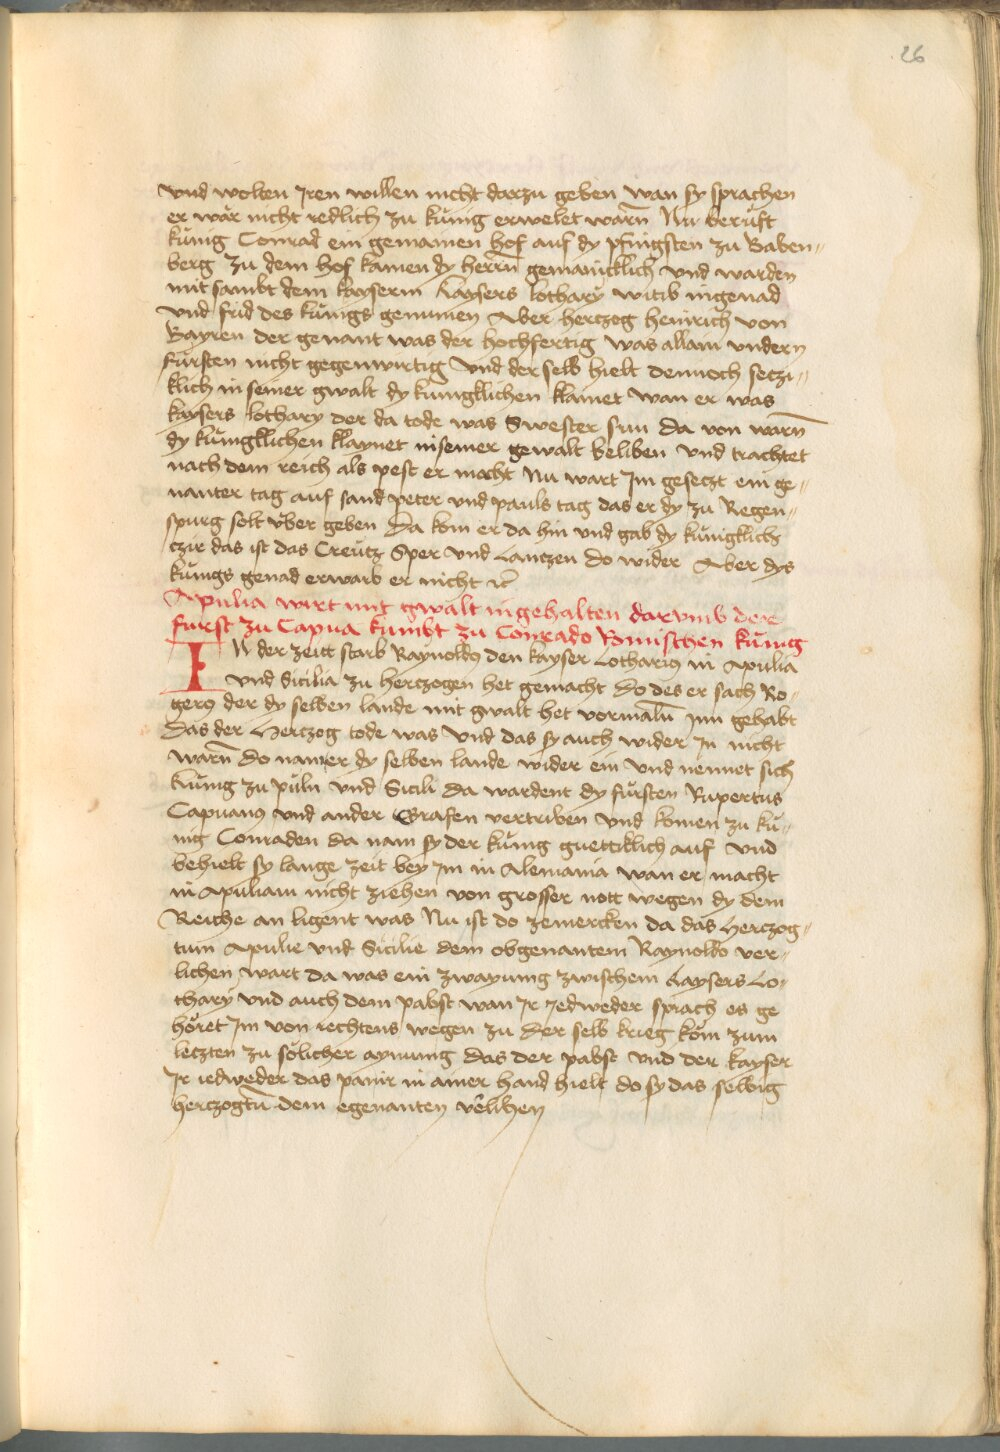 26
vnd wolten Jren willen nicht darzu geben wan sy sprachen
er wär nicht redlich zu kunig erwelet warn̄ Nu berüft
künig Conrad ein gemainen hof auf dy pfingsten zu Baben-
berg zu dem hof kamen dy herrn̄ gemainicklich vnd warden
mit sambt dem kayserin kaysers lothary witib ingenad
vnd frid des kunigs genumen Aber herczog heinrich von
Bayren der genant was der hochfertig was allain vndern
fürsten nicht gegenwirtig Vnd der selb hielt dennoch seczi-
klich in seiner gwalt dy kunigklichen klainet wan er was
kaysers lothary der da tode was Swester sun da von warn̄
dy kunigklichen klaynet in seiner gewalt beliben vnd trachtet
nach dem reich als pest er mocht Nu wart Jm gesetzt ein ge-
nanter tag auf sand peter vnd pauls tag das er dy zu Regen-
spurg solt vber geben Da kom er da hin vnd gab dy kuniglich
czir das ist das Creutz Sper vnd Lantzen do wider Aber dys
kunigs genad erwarb er nicht ꝛc̄
Apulia wirt mit gwalt ingehalten darvmb der
furst zu Capua kumbt zu Conrado Romischen kunig
IN der zeitt starb Raynoldꝰ den kayser Lothariꝰ in Apulia
vnd Sicilia zu herczogen het gemacht Do des er sach Ro-
gerꝰ der dy selben lande mit gwalt het vormaln̄ inn gehabt
Das der Herczog tode was vnd das sy auch wider in nicht
warn̄ Do namer dy selben lande wider ein vnd nennet sich
kunig zu puln vnd Sicili Da wardent dy fürsten Rupertus
Capuanꝰ vnd ander Grafen vertriben vnd komen zu ku-
nig Conraden da nam sy der kunig guettiklich auf vnd
behielt sy lange zeit bey Jm in Alemania wan er macht
in Apuliam nicht ziehen von grosser nott wegen dy dem
Reiche an ligent was Nu ist do zemercken da das Herczog-
tum Apulie vnd Sicilie dem obgenantem Raynoldo ver-
lichen wart da was ein zwayung zwischem kaysers Lo-
thary vnd auch dem pabst wan Jr Jedweder sprach es ge
höret Jm von rechtens wegen zu Der selb krieg kom zum
letzten zu sölicher aynung das der pabst vnd der kayser
Jr iedweder das panir in ainer hand hielt do sy das selbig
herczogtū dem egenanten v̄lihen